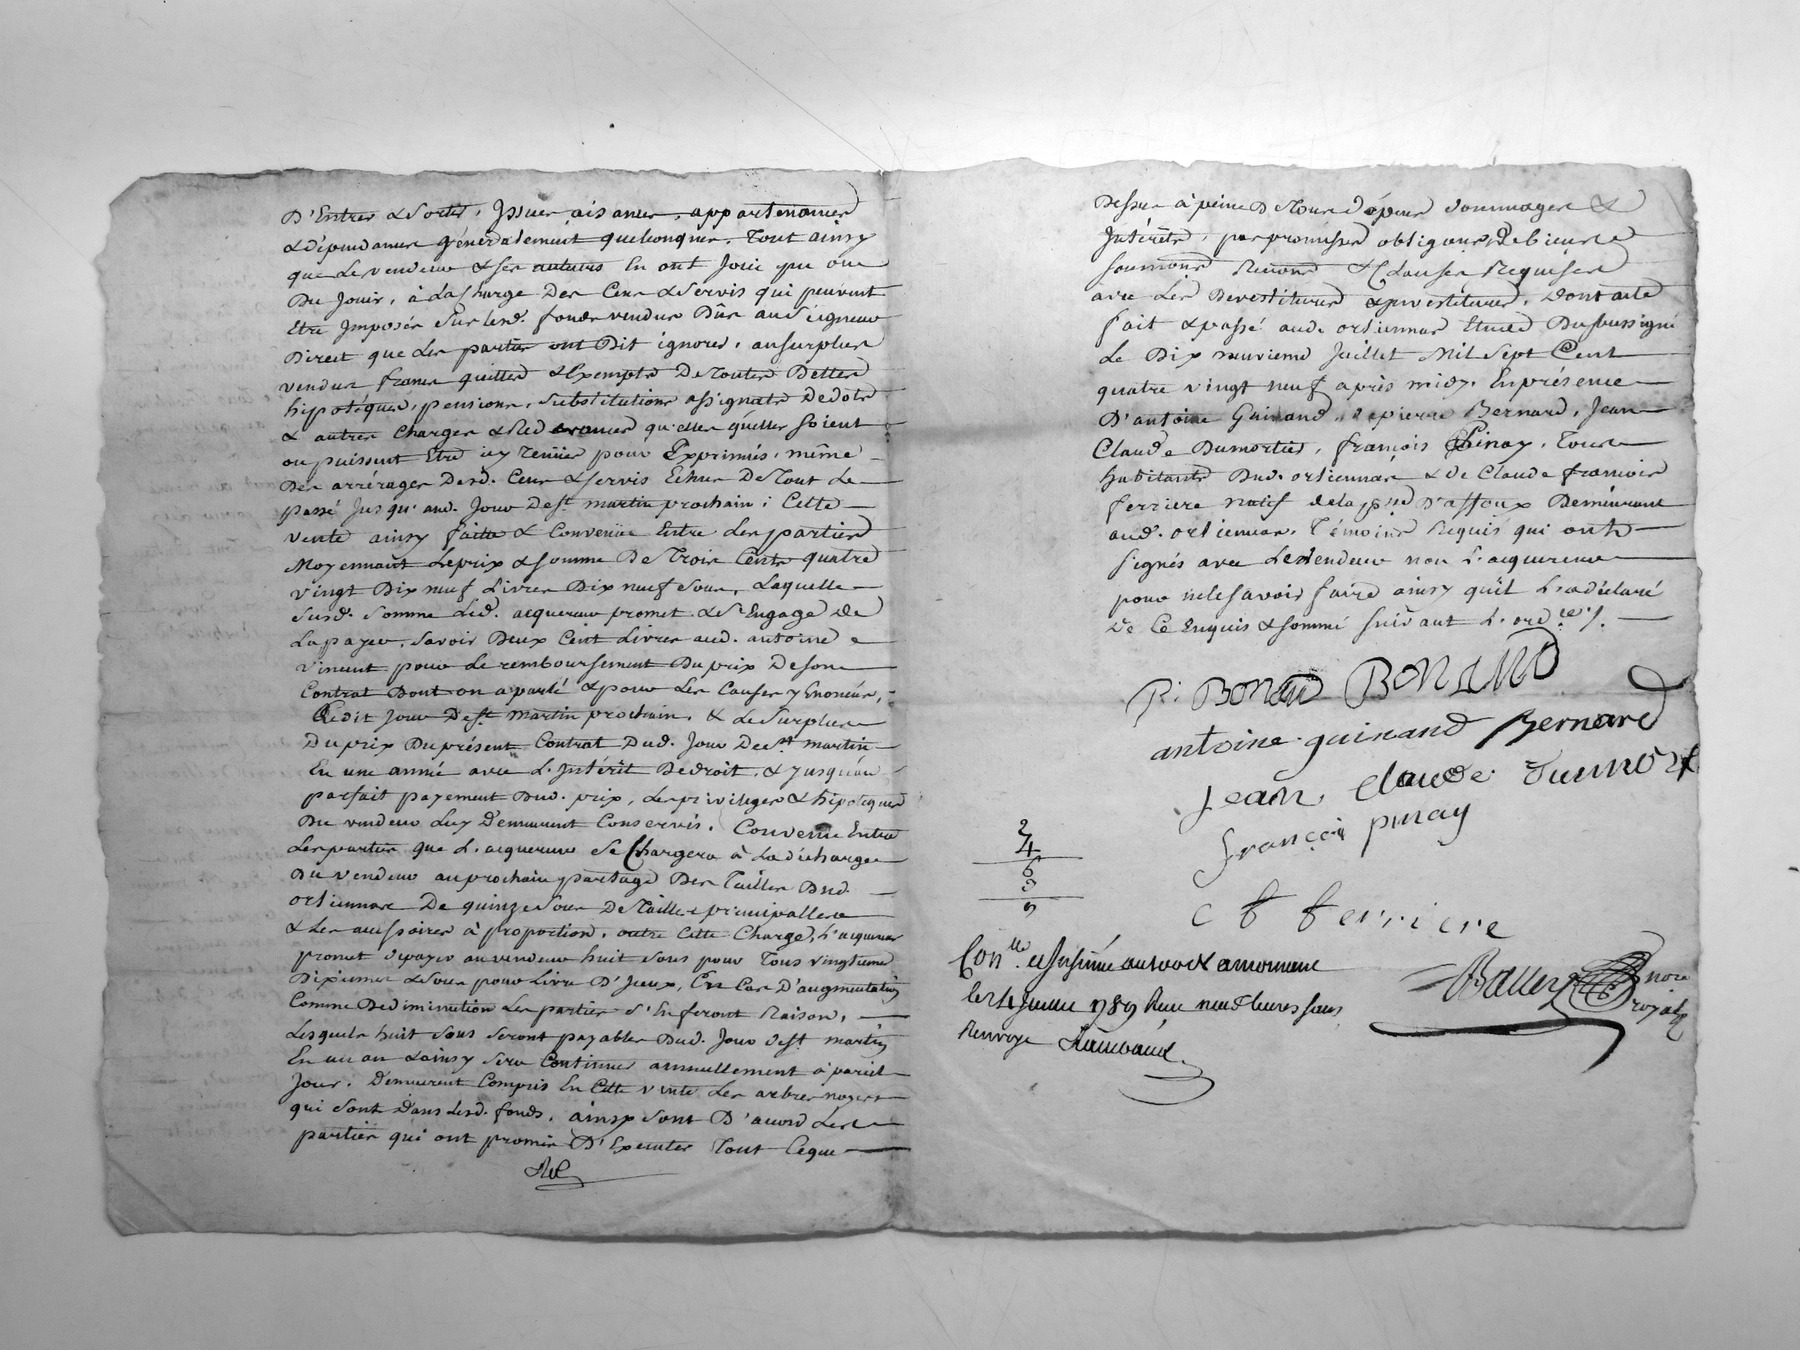 D'Entrée & Sortie, Issues aisances, appartenances
& dépendances généralement quelconques. Tout ainsy
que Le vendeur & ses auteurs En ont Joüi pu ou
Du Jouir, à La Charge Des Cens & Servis qui peuvent
Etre Imposés Sur lesd. fonds vendus Dûs au Seigneur
Direct que Les parties ont Dit ignorer, au surplus
vendus francs quittes & Exempts De Toutes Dettes
hipotéques, pensions, Substitutions assignats De dots
& autres Charges & Redevances qu'elles qu'elles soient
ou puissent Etre icy Tenües pour Exprimées, même
Des arrérages Desd. Cens & Servis Echus De Tout Le
passé Jusqu'aud. Jour De St. martin prochain; Cette
vente ainsy faitte & Convenüe Entre Les parties
Moyennant Le prix & somme De Trois Cents quatre
vingt Dix neuf Livres Dix neuf Sous, Laquelle
Susd. Somme Led. acquereur promet & s'Engage De
La payer, Savoir Deux Cent Livres aud. antoine
vincent pour Le remboursement Du prix De son
Contrat Dont on a parlé & pour Les Causes y Enoncées,
Ledit Jour De St. martin prochain, & Le Surplus
Du prix Du présent Contrat Dud. Jour De St martin
En une année avec L'Intérêt De droit, & Jusqu'au
parfait payement Dud. prix, Les privileges & hipoteques
Du vendeur Luy Demeurent Conservés. Convenu Entre
Les parties que L'acquereur Se Chargera à La décharge
Du vendeur au prochain partage Des Tailles Dud.
orliennas De quinze Sous De Taille principalle
& Les accessoires à proportion, outre Cette Charge, L'acquereur
promet De payer au vendeur huit Sous pour Tous vingtieme
Dixiemes & Sous pour Livre D'Iceux, En Cas D'augmentation
Comme De diminution Les parties s'En feront Raison,
Lesquels huit Sous Seront payables Dud. Jour De St. martin
En un an & ainsy Sera Continué annuellement à pareil
Jour. Demeurent Compris En Cette vente Les arbres noyers
qui Sont Dans Lesd. fonds. ainsy Sont D'acord Les
parties qui ont promis D'Executer Tout Ce que
Dessus à peine De Tous Dépens Dommages &
Intérêts, par promesses obligations De biens
Soumissions Renons & Clauses Requises
avec Les Devestitures & investitures, Dont acte
fait & passé aud. orliennas Etude Du soussigné
Le Dix neuvieme Juillet Mil Sept Cent
quatre vingt neuf après midy. En présence
D'antoine Guinand, pierre Bernard, Jean
Claude Dumortier, françois Pinay, Tous
habitants Dud. orliennas & De Claude françois
ferriere natif De La D'affoux Demeurant
aud. orliennas, Témoins Requis qui ont
Signés avec Le vendeur non L'acquereur
pour ne Le Savoir faire ainsy qu'il L'a déclaré
De Ce Enquis & Sommé Suivant L'ord.ce /.
P. Bonand BONAND
antoine guinand Bernard
Jean claude Dumort
françois pinay
c f ferriere
notre
royal
2
4
6
3
9
Con.lle
1789 Reçu neuf livres